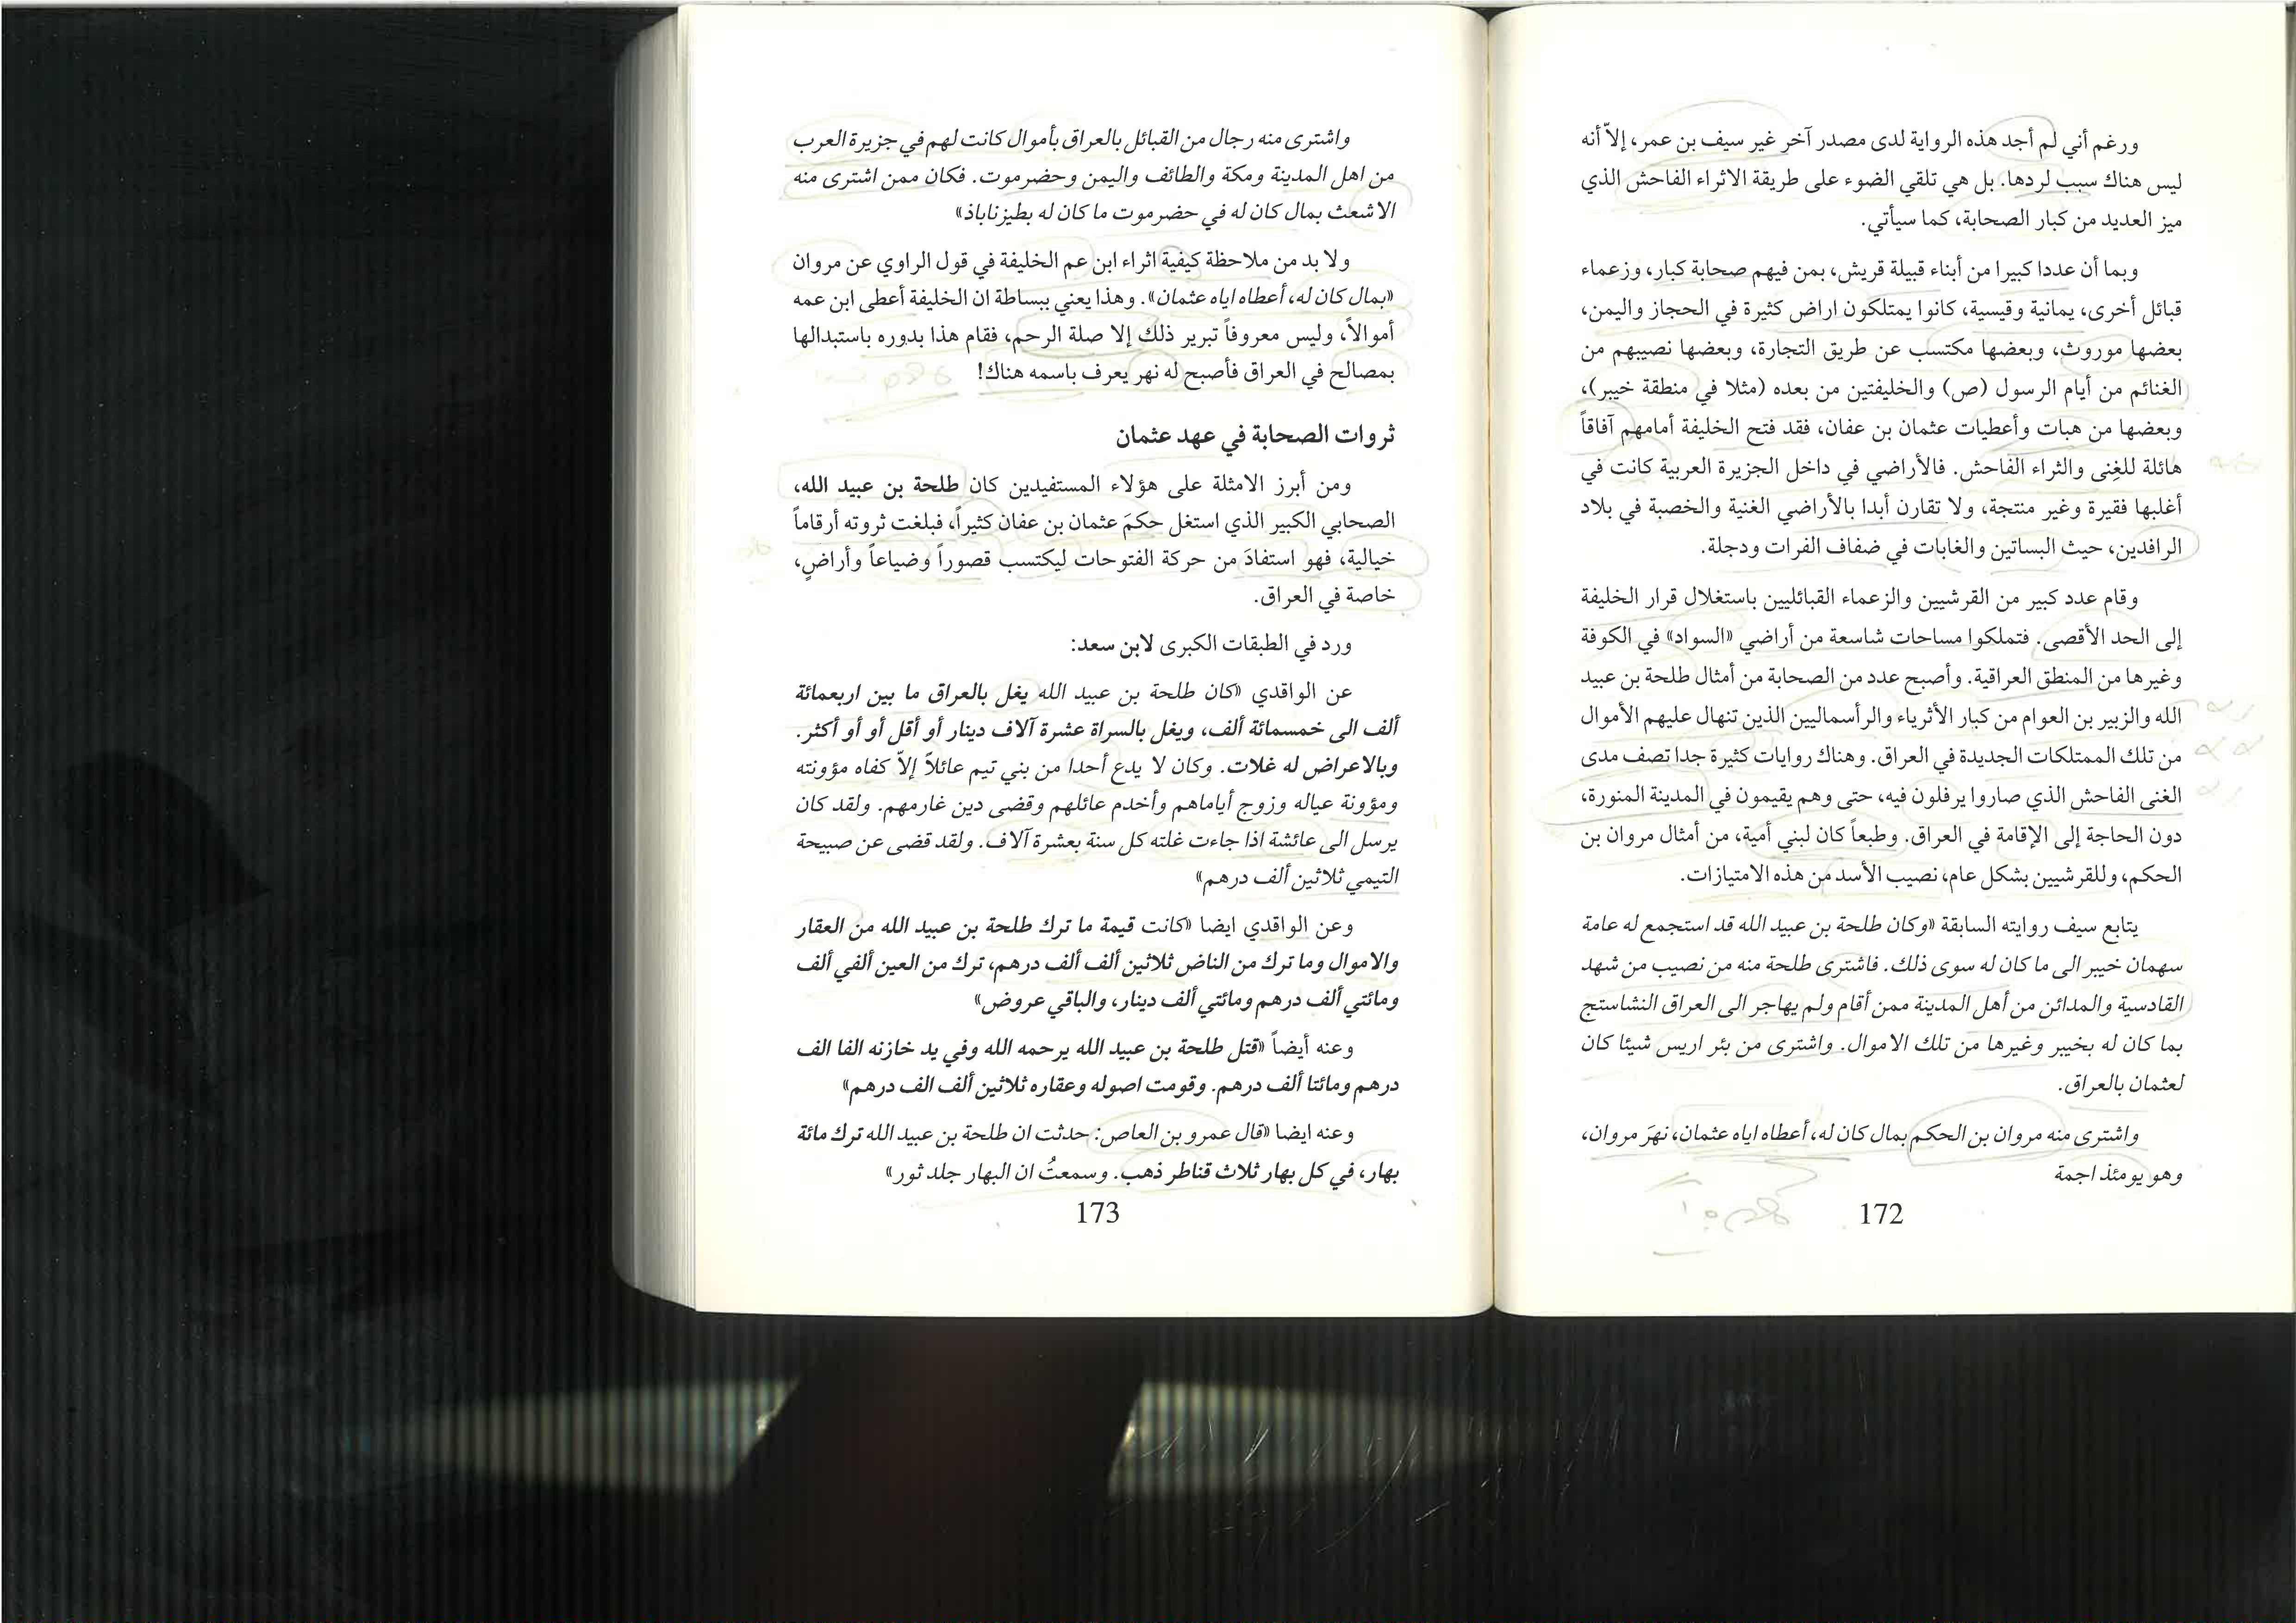 ورغم أني لم أجد هذه الرواية لدى مصدر آخر غير سيف بن عمر، إلاّ أنه
ليس هناك سبب لردها. بل هي تلقي الضوء على طريقة الاثراء الفاحش الذي
ميز العديد من كبار الصحابة، كما سيأتي.
وبما أن عددا كبيرا من أبناء قبيلة قريش، بمن فيهم صحابة كبار، وزعماء
قبائل أخرى، يمانية وقيسية، كانوا يمتلكون اراض كثيرة في الحجاز واليمن،
بعضها موروث، وبعضها مكتسب عن طريق التجارة، وبعضها نصيبهم من
الغنائم من أيام الرسول (ص) والخليفتين من بعده (مثلا في منطقة خيبر)،
وبعضها من هبات وأعطيات عثمان بن عفان، فقد فتح الخليفة أمامهم آفاقاً
هائلة للغِنى والثراء الفاحش. فالأراضي في داخل الجزيرة العربية كانت في
أغلبها فقيرة وغير منتجة، ولا تقارن أبدا بالأراضي الغنية والخصبة في بلاد
الرافدين، حيث البساتين والغابات في ضفاف الفرات ودجلة.
وقام عدد كبير من القرشيين والزعماء القبائليين باستغلال قرار الخليفة
إلى الحد الأقصى. فتملكوا مساحات شاسعة من أراضي «السواد» في الكوفة
وغيرها من المنطق العراقية. وأصبح عدد من الصحابة من أمثال طلحة بن عبيد
الله والزبير بن العوام من كبار الأثرياء والرأسماليين الذين تنهال عليهم الأموال
من تلك الممتلكات الجديدة في العراق. وهناك روايات كثيرة جدا تصف مدى
الغنى الفاحش الذي صاروا يرفلون فيه، حتى وهم يقيمون في المدينة المنورة،
دون الحاجة إلى الإقامة في العراق. وطبعاً كان لبني أمية، من أمثال مروان بن
الحكم، وللقرشيين بشكل عام، نصيب الأسد من هذه الامتيازات.
يتابع سيف روايته السابقة «وكان طلحة بن عبيد الله قد استجمع له عامة
سهمان خيبر الى ما كان له سوى ذلك. فاشترى طلحة منه من نصيب من شهد
القادسية والمدائن من أهل المدينة ممن أقام ولم يهاجر الى العراق النشاستج
بما كان له بخيبر وغيرها من تلك الاموال. واشترى من بئر اريس شيئا كان
لعثمان بالعراق.
واشترى منه مروان بن الحكم بمال كان له، أعطاه اياه عثمان، نهرَ مروان،
وهو يومئذ اجمة
172
واشترى منه رجال من القبائل بالعراق بأموال كانت لهم في جزيرة العرب
من اهل المدينة ومكة والطائف واليمن وحضرموت. فكان ممن اشترى منه
الاشعث بمال كان له في حضرموت ما كان له بطيزناباذ»
ولا بد من ملاحظة كيفية اثراء ابن عم الخليفة في قول الراوي عن مروان
«بمال كان له، أعطاه اياه عثمان». وهذا يعني ببساطة ان الخليفة أعطى ابن عمه
أموالاً، وليس معروفاً تبرير ذلك إلا صلة الرحم، فقام هذا بدوره باستبدالها
بمصالح في العراق فأصبح له نهر يعرف باسمه هناك!
ثروات الصحابة في عهد عثمان
ومن أبرز الامثلة على هؤلاء المستفيدين كان طلحة بن عبيد الله،
الصحابي الكبير الذي استغل حكمَ عثمان بن عفان كثيراً، فبلغت ثروته أرقاماً
خيالية، فهو استفادَ من حركة الفتوحات ليكتسب قصوراً وضياعاً وأراضٍ،
خاصة في العراق.
ورد في الطبقات الكبرى لابن سعد:
عن الواقدي «كان طلحة بن عبيد الله يغل بالعراق ما بين اربعمائة
ألف الى خمسمائة ألف، ويغل بالسراة عشرة آلاف دينار أو أقل أو أو أكثر.
وبالاعراض له غلات. وكان لا يدع أحدا من بني تيم عائلاً إلاّ كفاه مؤونته
ومؤونة عياله وزوج أياماهم وأخدم عائلهم وقضى دين غارمهم. ولقد كان
يرسل الى عائشة اذا جاءت غلته كل سنة بعشرة آلاف. ولقد قضى عن صبيحة
التيمي ثلاثين ألف درهم»
وعن الواقدي ايضا «كانت قيمة ما ترك طلحة بن عبيد الله من العقار
والاموال وما ترك من الناض ثلاثين ألف ألف درهم، ترك من العين ألفي ألف
ومائتي ألف درهم ومائتي ألف دينار، والباقي عروض»
وعنه أيضاً «قتل طلحة بن عبيد الله يرحمه الله وفي يد خازنه الفا الف
درهم ومائتا ألف درهم. وقومت اصوله وعقاره ثلاثين ألف الف درهم»
وعنه ايضا «قال عمرو بن العاص: حدثت ان طلحة بن عبيد الله ترك مائة
بهار، في كل بهار ثلاث قناطر ذهب. وسمعتُ ان البهار جلد ثور»
173